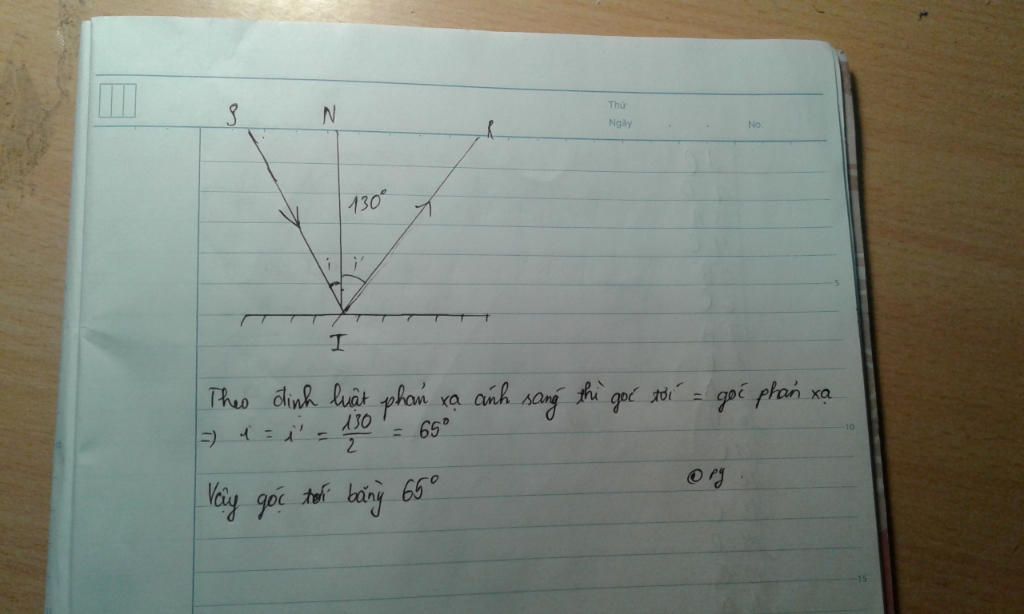 Thứ
Ngày . . No.
S N R
130°
i i'
5
I
Theo định luật phản xạ ánh sáng thì góc tới = góc phản xạ
=> i = i' = 130/2 = 65°
10
Vậy góc tới bằng 65°
15